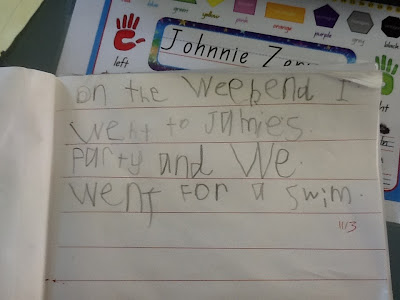 green yellow pink orange purple grey black
left
Johnnie
on the Weepend I
Went to Jamies.
Party and We.
Went for a swim.
11/3